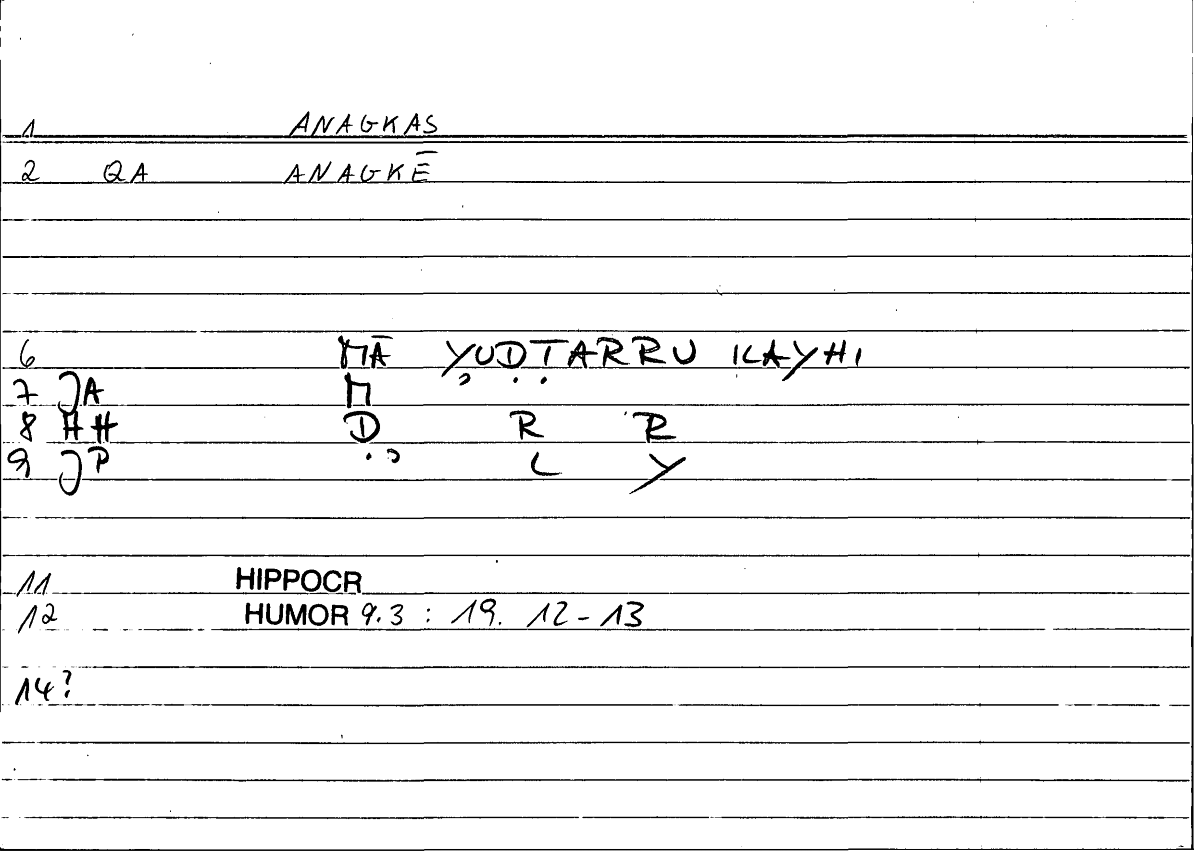 1 ANAGKAS
2 QA ANAGKĒ
6 MĀ YUḌṬARRU ILAYHI
7 JA M
8 HH Ḍ R R
9 JP L Y
11 HIPPOCR
12 HUMOR 9.3 : 19. 12-13
14?